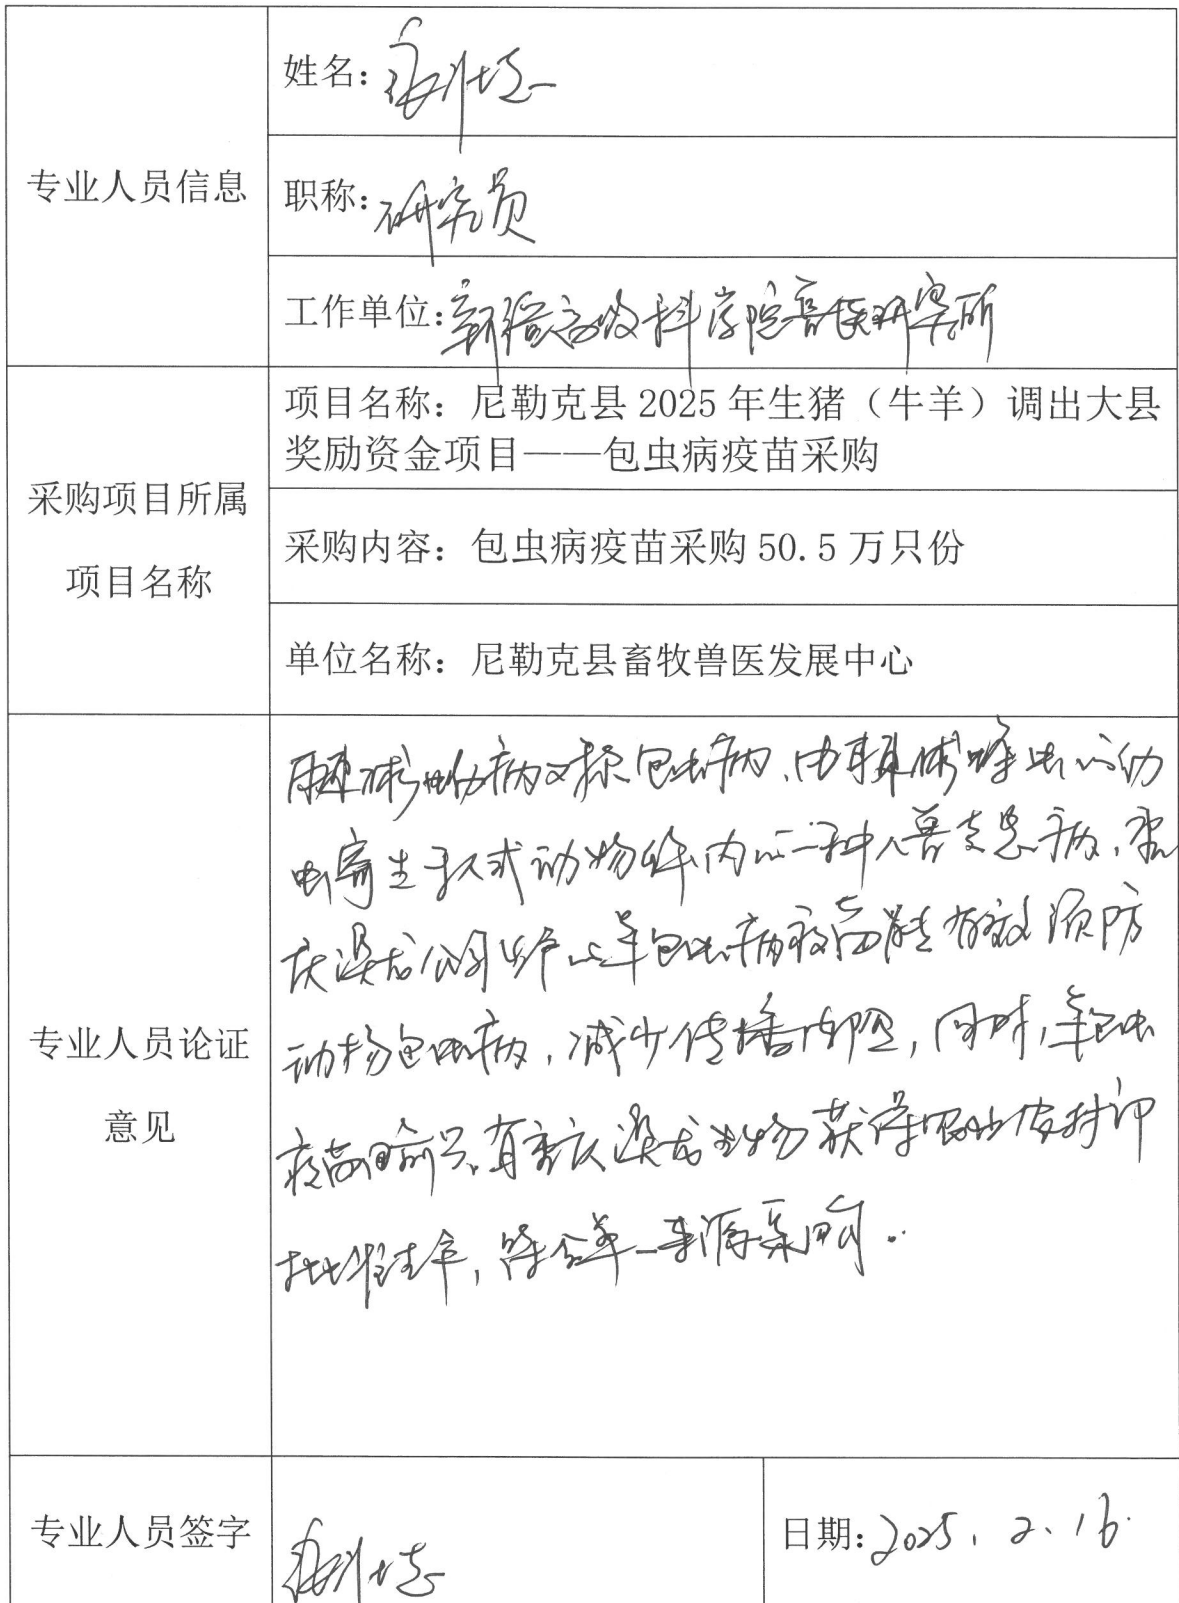 专业人员信息
姓名:
职称:研究员
工作单位:新疆畜牧科学院兽医研究所
采购项目所属
项目名称
项目名称：尼勒克县 2025 年生猪（牛羊）调出大县
奖励资金项目——包虫病疫苗采购
采购内容：包虫病疫苗采购 50.5 万只份
单位名称：尼勒克县畜牧兽医发展中心
专业人员论证
意见
棘球蚴病又称包虫病,由棘球绦虫的幼
虫寄生于人或动物体内的一种人兽共患病,重
庆澳龙公司生产的羊包虫病疫苗能有效预防
动物包虫病,减少传播风险,同时,羊包虫
疫苗目前只有重庆澳龙生物获得农业农村部
批准生产,符合单一来源采购.
专业人员签字
日期:2025.2.16.